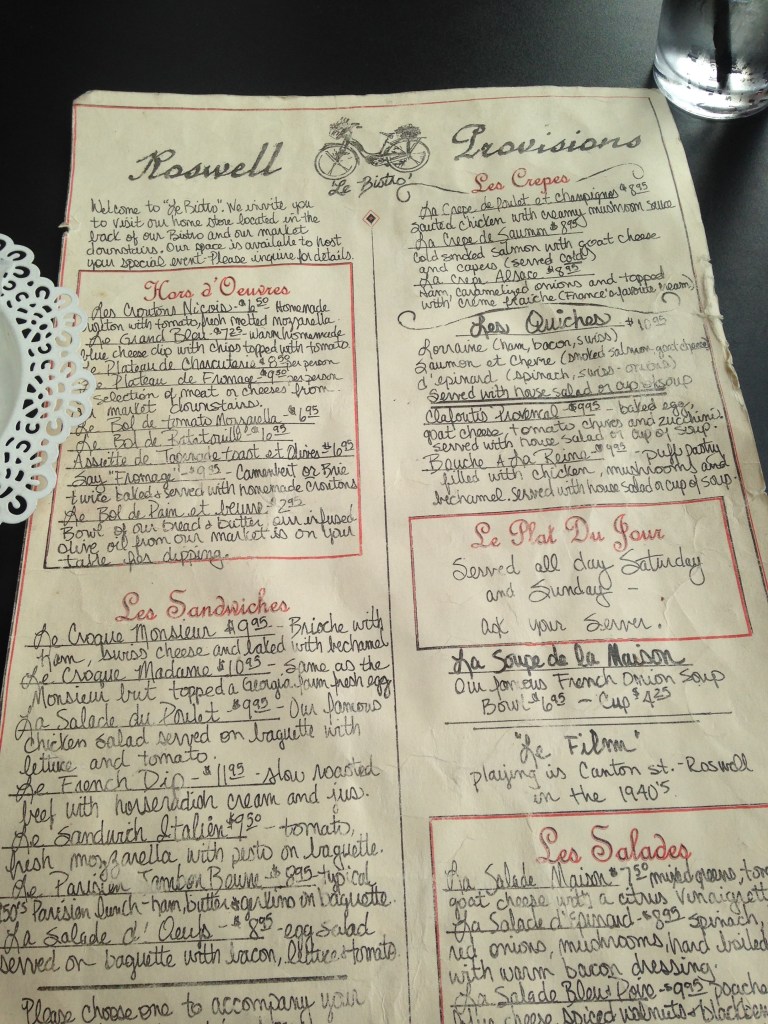 Roswell Provisions
Le Bistro'
Welcome to "Le Bistro". We invite you
to visit our home store located in the
back of our Bistro and our market
downstairs. Our space is available to host
your special event. Please inquire for details.
Hors d'Oeuvres
Les Croutons Nicois - $6.50 Homemade
crouton with tomato, fresh melted mozzarella.
Le Grand Bleu - $7.25 - warm homemade
blue cheese dip with chips topped with tomato.
Le Plateau de Charcuterie $8.50 per person
Le Plateau de Fromage - $9.50 - per person
selection of meat or cheeses from
market downstairs.
Le Bol de tomato Mozzarella - $6.95
Le Bol de Ratatouille - $6.95
Assiette de Tapenade toast et Olives $6.95
Say "Fromage" - $9.95 - Camembert or Brie
twice baked & served with homemade croutons
Le Bol de Pain et beurre - $2.95
Bowl of our bread & butter, our infused
olive oil from our market is on your
table for dipping.
Les Sandwiches
Le Croque Monsieur $9.95 - Brioche with
Ham, swiss cheese and baked with bechamel
Le Croque Madame $10.95 - same as the
Monsieur but topped a Georgia farm fresh egg
La Salade du Poulet - $9.95 - Our famous
chicken salad served on baguette with
lettuce and tomato.
Le French Dip - $11.95 - slow roasted
beef with horseradish cream and jus.
Le Sandwich Italien $9.50 - tomato,
fresh mozzarella, with pesto on baguette.
Le Parisien Jambon Beurre - $8.95 - typical
50's Parisian lunch - ham, butter & on baguette.
La Salade d' Oeufs - $8.95 - egg salad
served on baguette with bacon, lettuce & tomato.
Please choose one to accompany your
Les Crepes
La Crepe de Poulet et Champignes $8.95
sauted chicken with creamy mushroom sauce
La Crepe de Saumon $8.95
Cold smoked salmon with goat cheese
and capers (served cold)
La Crepe Alsace - $8.95
Ham, caramelized onions and topped
with creme fraiche (France's favorite cream)
Les Quiches $10.95
Lorraine (ham, bacon, swiss)
Saumon et Chevre (smoked salmon, goat cheese)
d'epinard (spinach, swiss - onions)
Served with house salad or cup of soup
Clafoutis Provencal $9.95 - baked egg,
goat cheese, tomato chives and zucchini.
served with house salad or cup of soup.
Bouche A La Reine $9.95 - puff pastry
filled with chicken, mushrooms and
bechamel. served with house salad or cup of soup.
Le Plat Du Jour
Served all day Saturday
and Sunday -
ask your Server.
La Soupe de la Maison
Our famous French Onion Soup
Bowl $6.95 - Cup $4.25
"Le Film"
playing is Canton st. - Roswell
in the 1940's.
Les Salades
La Salade Maison $7.50 mixed greens, tom
goat cheese with a citrus vinaigrett
La Salade d'Epinard - $8.95 - spinach,
red onions, mushrooms, hard boiled
with warm bacon dressing.
La Salade Bleu Poire - $9.95 poache
blue cheese spiced walnuts & blackber